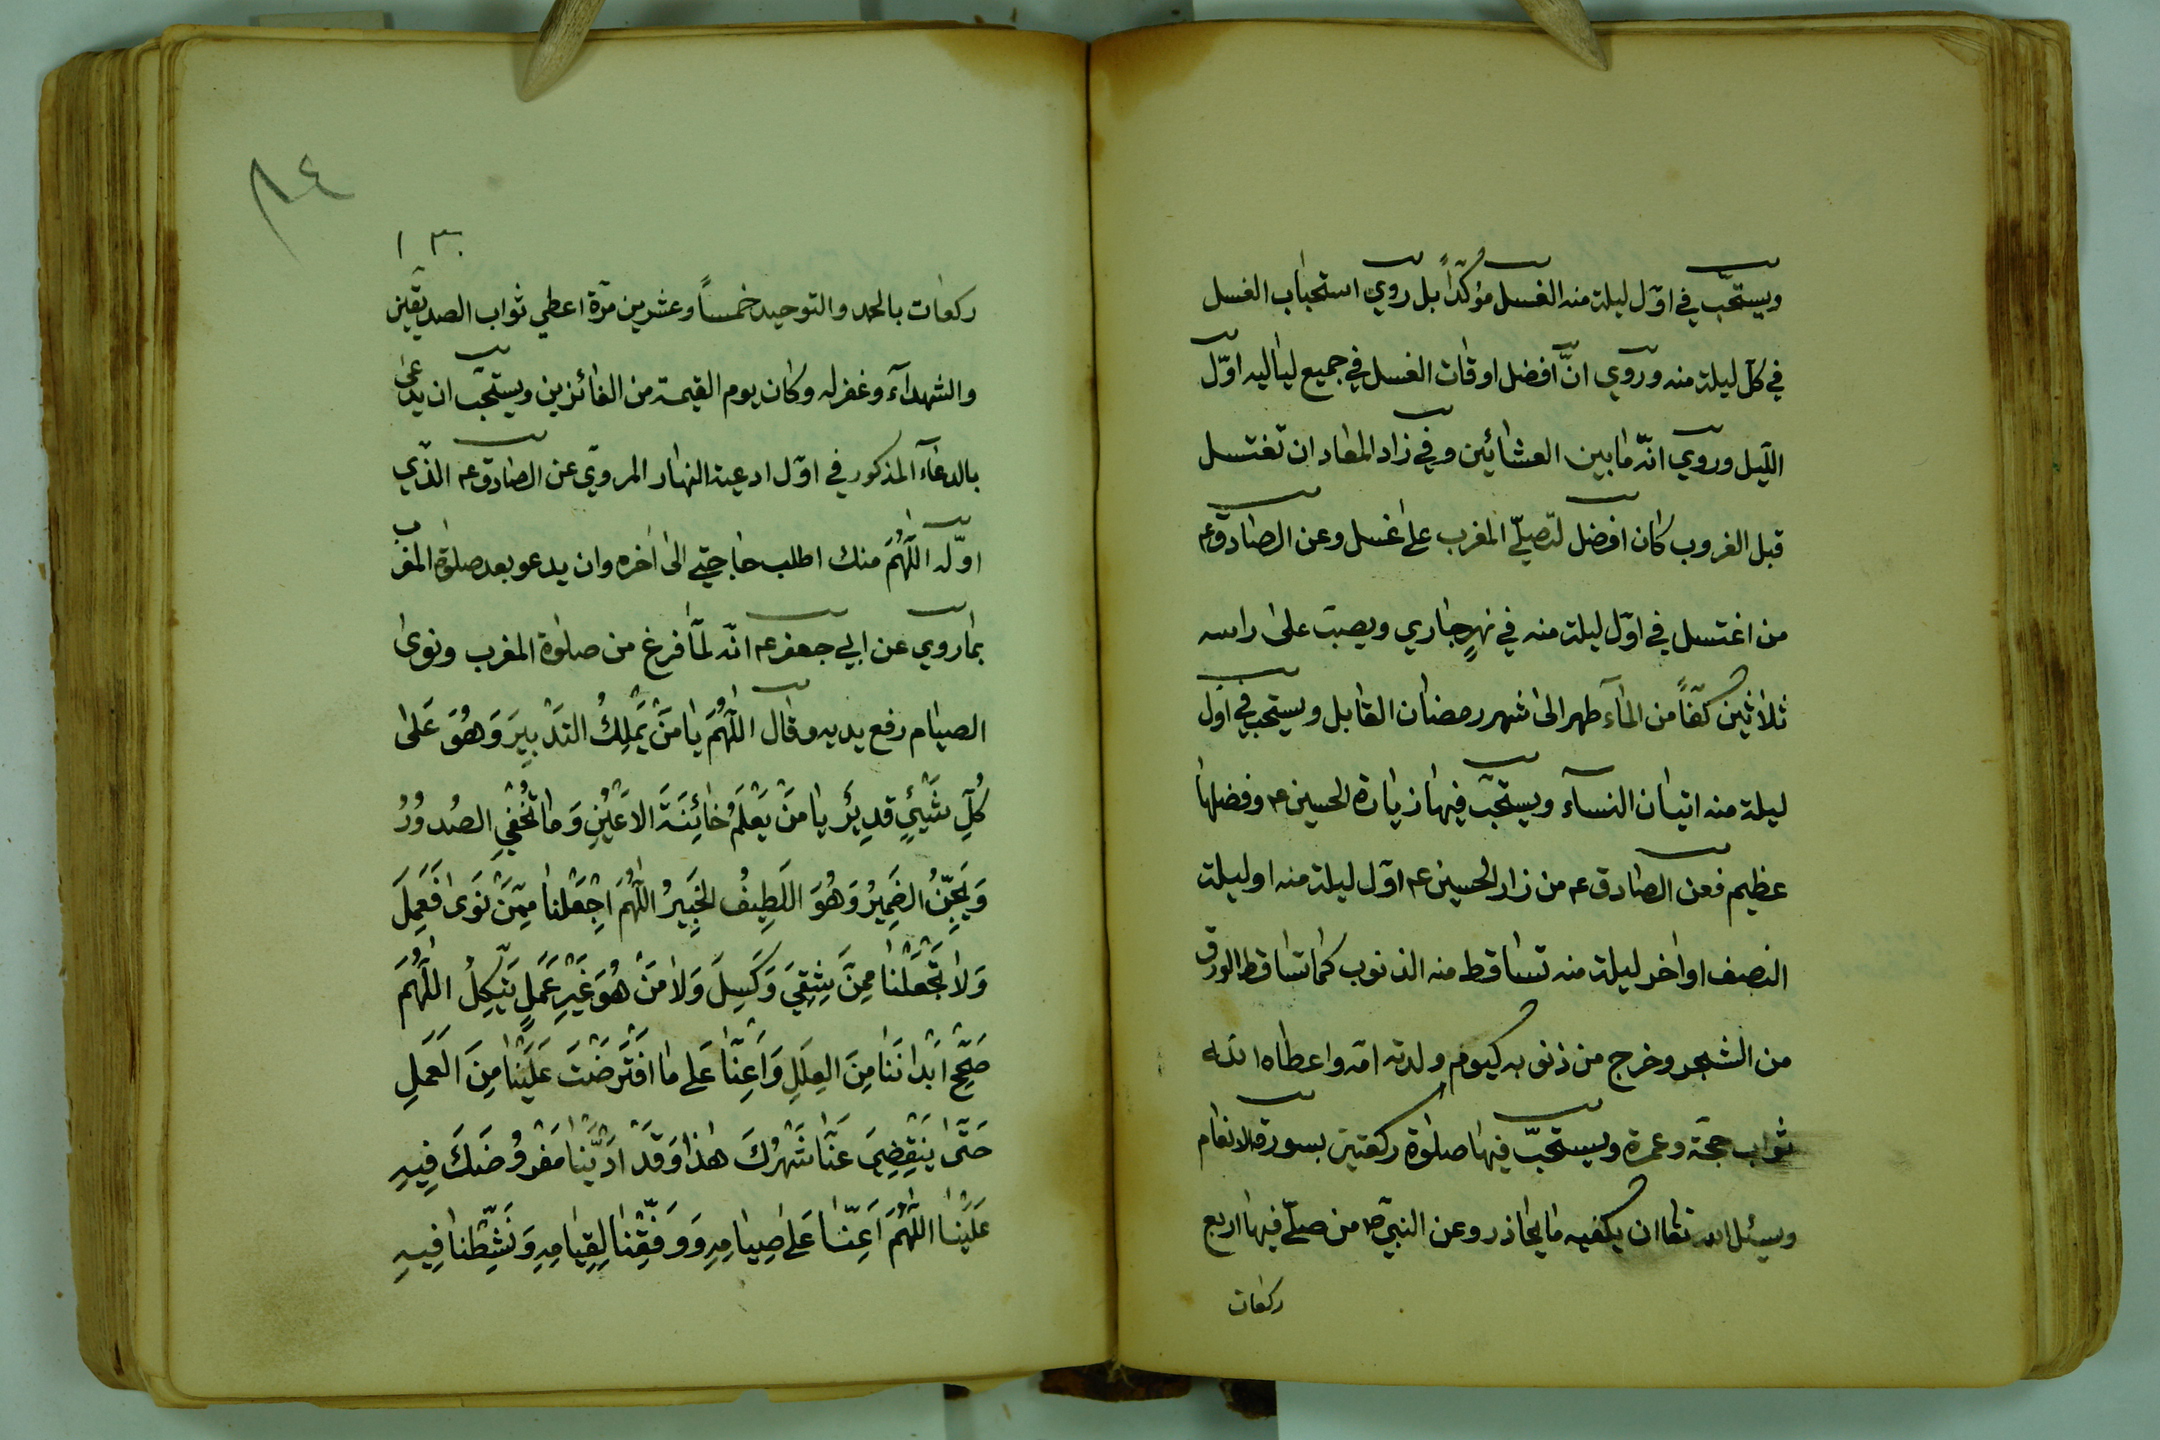 ويستحبّ في اوّل ليلة منه الغسل مؤكّداً بل روي استحباب الغسل
في كلّ ليلة منه وروي انّ افضل اوقات الغسل في جميع لياليه اوّل
اللّيل وروي انّه ما بين العشائين وفي زاد المعاد ان تغتسل
قبل الغروب كان افضل لتصلّي المغرب على غسل وعن الصادق ع
من اغتسل في اوّل ليلة منه في نهرٍ جاري ويصبّ على راسه
ثلاثين كفّاً من المآء طهر الى شهر رمضان القابل ويستحب في اول
ليلة منه اتيان النسآء ويستحبّ فيها زيارة الحسين ع وفضلها
عظيم فعن الصادق ع من زار الحسين ع اوّل ليلة منه او ليلة
النصف او اخر ليلة منه تساقط منه الذنوب كما تساقط الورق
من الشجر وخرج من ذنوبه كيوم ولدته امّه واعطاه الله
ثواب حجّة وعمرة ويستحبّ فيها صلوة ركعتين بسورة الانعام
ويسئل الله تعا ان يكفيه ما يحاذر وعن النبيّ ص من صلّى فيها اربع
ركعات
٨٤
١٣٠
ركعات بالحمد والتوحيد خمساً وعشرين مرّة اعطي ثواب الصديقين
والشهدآء وغفر له وكان يوم القيمة من الفائزين ويستحبّ ان يدعى
بالدعآء المذكور في اوّل ادعية النهار المروي عن الصادق ع الذي
اوّله اللّهُمَ منك اطلب حاجتي الى اخره وان يدعو بعد صلوة المغرب
بما روي عن ابي جعفر ع انّه لمّا فرغ من صلوة المغرب ونوى
الصيام رفع يديه وقال اللّهُمَ يا مَنْ يَمْلِكُ التَدْبِيرَ وَهُوَ عَلى
كُلِّ شَيْئٍ قديرٌ يا مَنْ يَعْلَمُ خائِنَةَ الاَعْيُنِ وَما تُخْفِي الصُدورُ
وَيُجِنُّ الضَمِيرُ وَهُوَ اللَطِيفُ الخَبِيرُ اللّهُمَ اجِعَلْنا مِمَّنْ نَوى فَعَمِلَ
وَلا تَجْعَلْنا مِمَّنَ شِقِيَ وَكَسِلَ وَلا مَنْ هُوَ غَيْرِ عَمَلٍ يَتَّكِلُ اللّهُمَ
صَحِّحْ اَبْدانَنا مِنَ العِلَلِ وَاَعِنّا عَلى ما افْتَرَضْتَ عَلَيْنا مِنَ العَمَلِ
حَتّى يَنْقَضِيَ عَنّا شَهْرُكَ هذا وَقَدْ ادَّيْنا مَفْرُوضَكَ فِيهِ
عَلَيْنا اللّهُمَ اَعِنّا عَلى صِيامِهِ وَوَفِّقْنا لِقِيامِهِ وَنَشِّطْنا فِيهِ